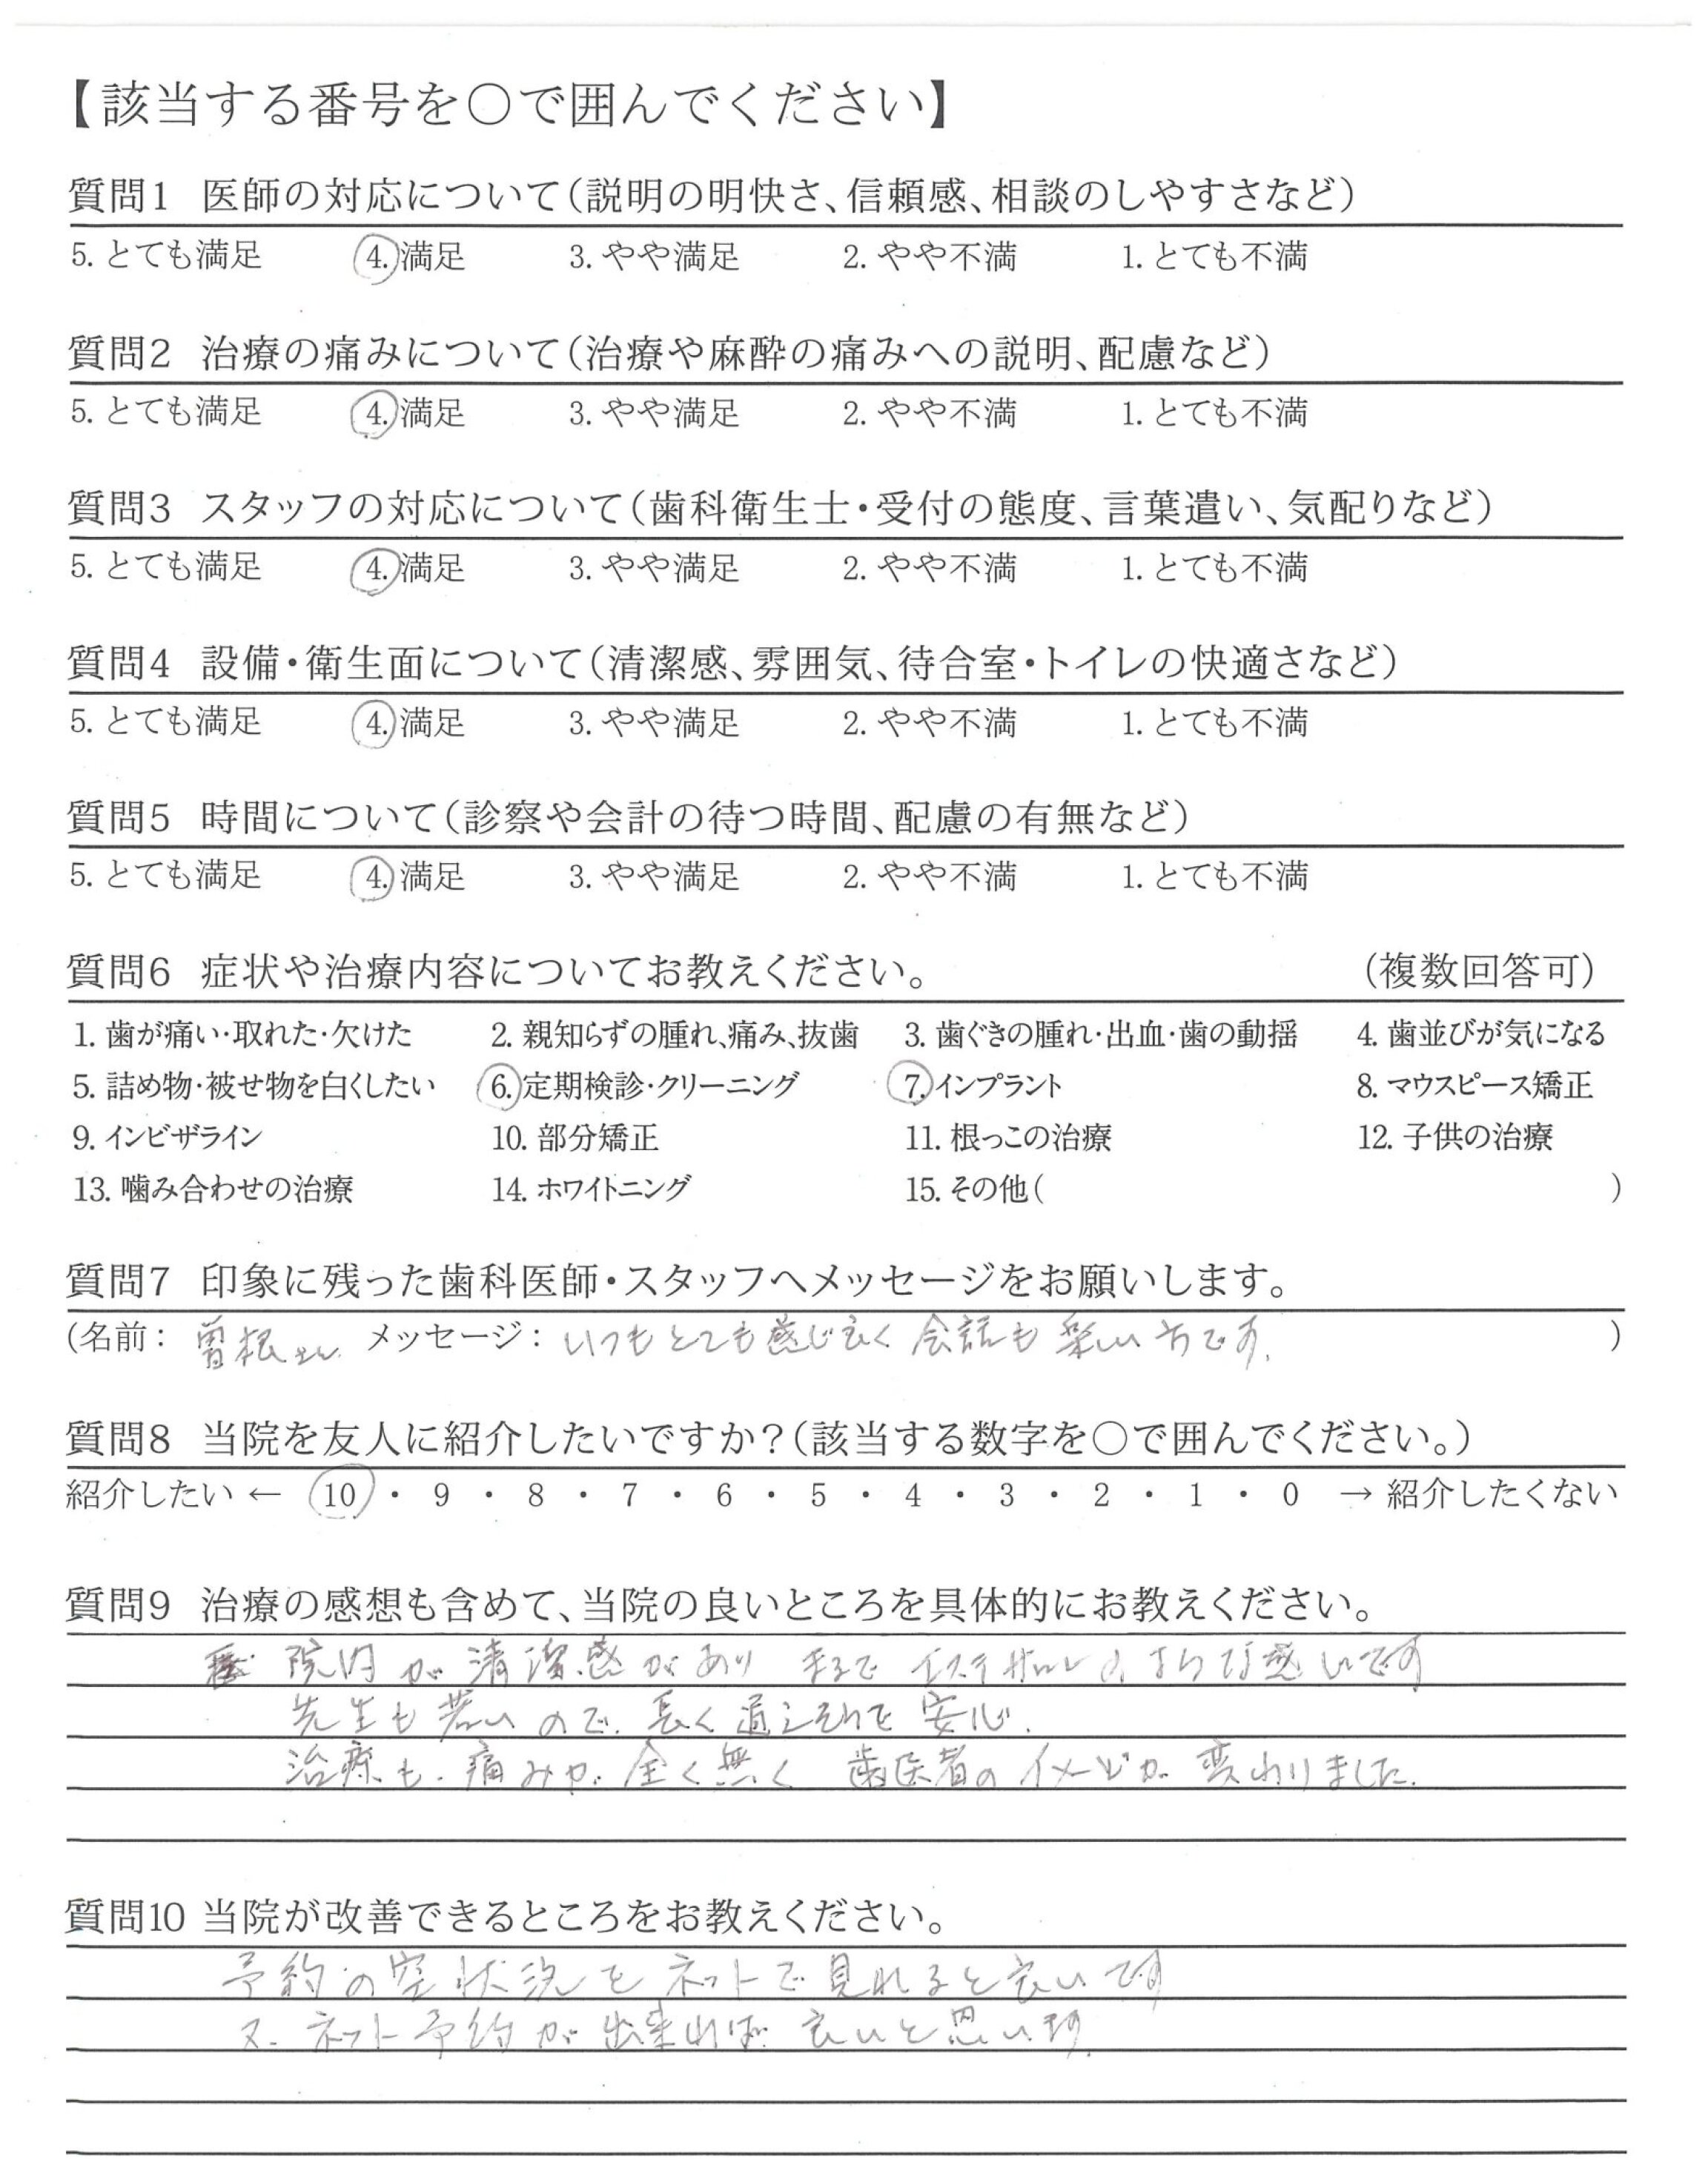 【該当する番号を○で囲んでください】
質問1 医師の対応について(説明の明快さ、信頼感、相談のしやすさなど)
5. とても満足 4. 満足 3. やや満足 2. やや不満 1. とても不満
質問2 治療の痛みについて(治療や麻酔の痛みへの説明、配慮など)
5. とても満足 4. 満足 3. やや満足 2. やや不満 1. とても不満
質問3 スタッフの対応について(歯科衛生士・受付の態度、言葉遣い、気配りなど)
5. とても満足 4. 満足 3. やや満足 2. やや不満 1. とても不満
質問4 設備・衛生面について(清潔感、雰囲気、待合室・トイレの快適さなど)
5. とても満足 4. 満足 3. やや満足 2. やや不満 1. とても不満
質問5 時間について(診察や会計の待つ時間、配慮の有無など)
5. とても満足 4. 満足 3. やや満足 2. やや不満 1. とても不満
質問6 症状や治療内容についてお教えください。 (複数回答可)
1. 歯が痛い・取れた・欠けた 2. 親知らずの腫れ、痛み、抜歯 3. 歯ぐきの腫れ・出血・歯の動揺 4. 歯並びが気になる
5. 詰め物・被せ物を白くしたい 6. 定期検診・クリーニング 7. インプラント 8. マウスピース矯正
9. インビザライン 10. 部分矯正 11. 根っこの治療 12. 子供の治療
13. 噛み合わせの治療 14. ホワイトニング 15. その他( )
質問7 印象に残った歯科医師・スタッフへメッセージをお願いします。
(名前: 曽根さん メッセージ: いつもとても感じ良く 会話も 楽しい方です. )
質問8 当院を友人に紹介したいですか?(該当する数字を○で囲んでください。)
紹介したい ← 10 ・ 9 ・ 8 ・ 7 ・ 6 ・ 5 ・ 4 ・ 3 ・ 2 ・ 1 ・ 0 → 紹介したくない
質問9 治療の感想も含めて、当院の良いところを具体的にお教えください。
院内が清潔感があり まるで エステサロンのような感じです
先生も若いので. 長く通えそうで 安心.
治療も. 痛みが 全く無く 歯医者のイメージが 変わりました.
質問10 当院が改善できるところをお教えください。
予約の空状況をネットで見れると良いです
又. ネット予約が出来れば 良いと思います.